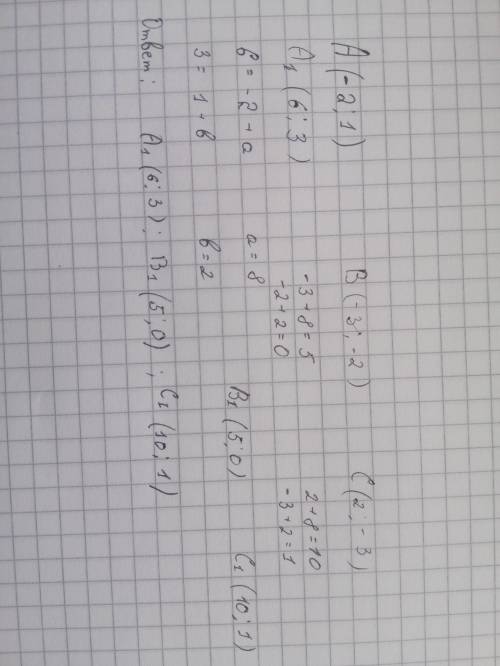 A (-2; 1) B (-3; -2) C (2; -3)
A₁ (6; 3) -3+8=5 2+8=10
-2+2=0 -3+2=1
6 = -2 + a a = 8 B₁ (5; 0) C₁ (10; 1)
3 = 1 + в в = 2
Ответ: A₁ (6; 3); B₁ (5; 0); C₁ (10; 1)